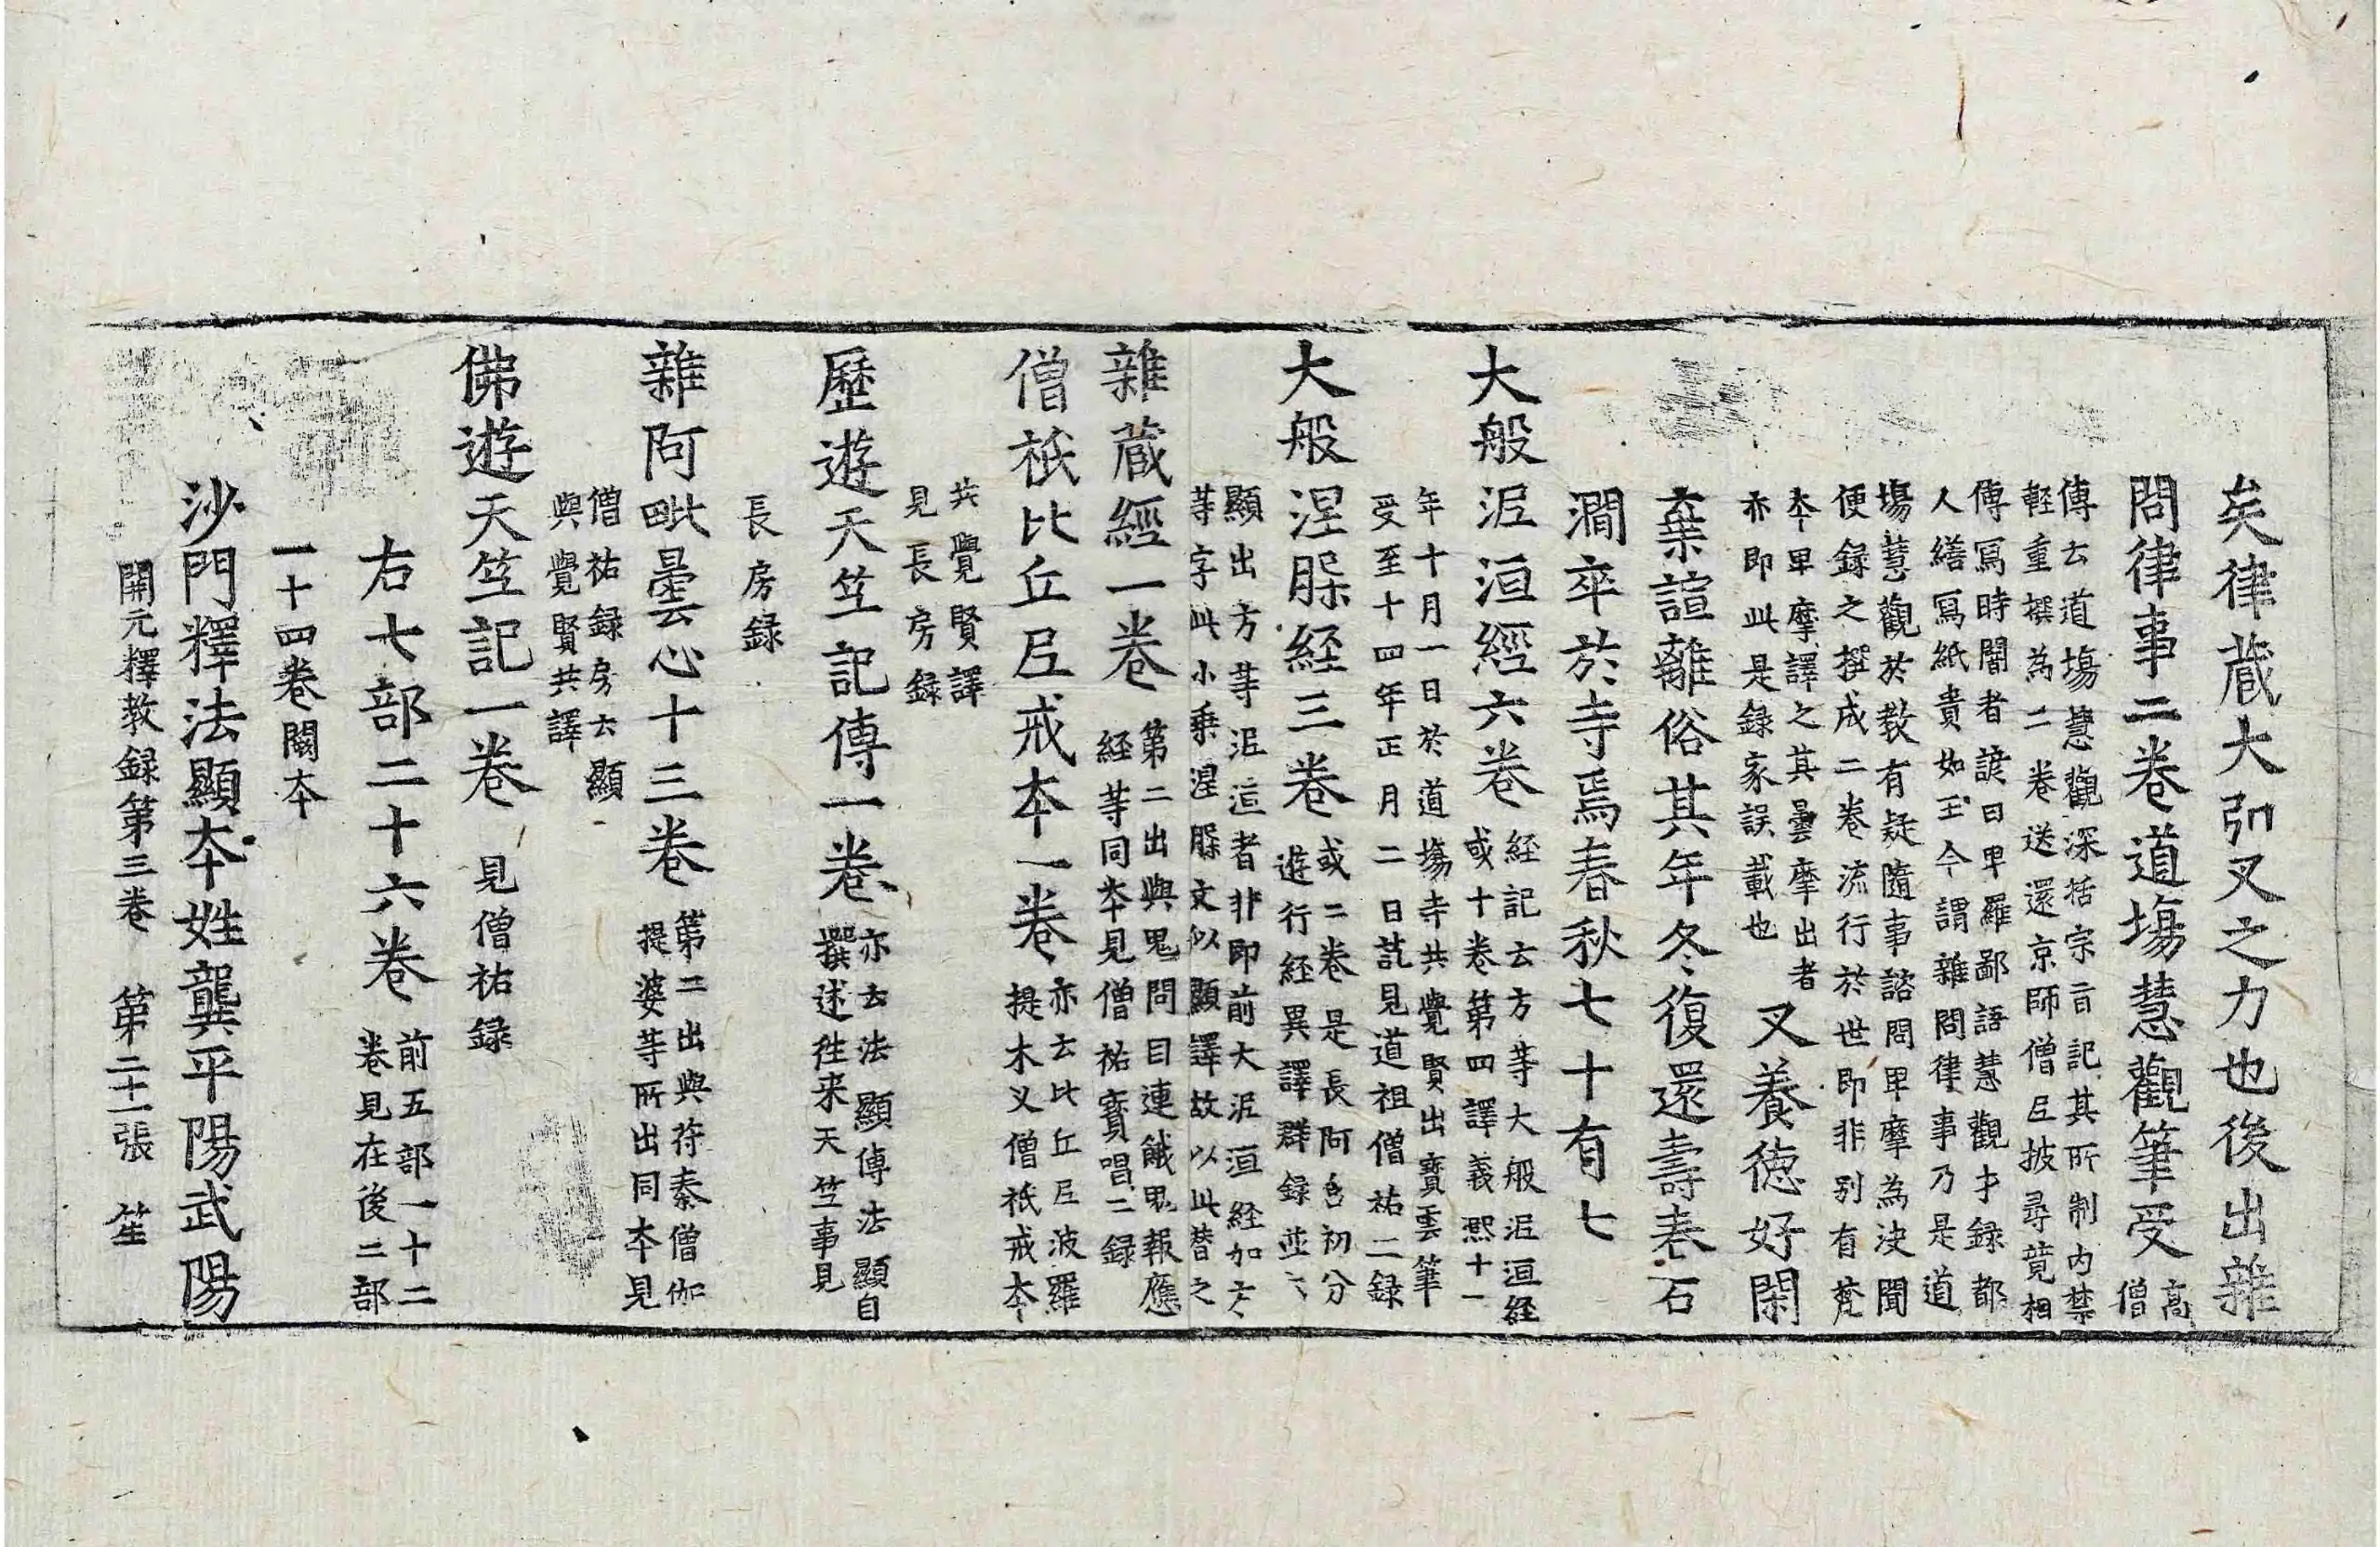 矣律蔵大弘叉之力也後出雜
問律事二卷道塲慧觀筆受高
僧
傳云道塲慧觀深括宗旨記其所制内禁
輕重撰為二卷送還京師僧尼披尋竟相
傳寫時聞者諺曰卑羅鄙語慧觀才録都
人繕寫紙貴如玉今謂雜問律事乃是道
塲慧觀於教有疑隨事諮問卑摩為決聞
便録之撰成二卷流行於世即非别有梵
夲卑摩譯之其曇摩出者
亦即此是録家誤載也
叉養徳好閑
棄諠離俗其年冬復還壽春石
澗卒於寺焉春秋七十有七
大般泥洹經六卷
経記云方等大般泥洹経
或十卷第四譯義熙十一
年十月一日於道塲寺共覺賢出寶雲筆
受至十四年正月二日訖見道祖僧祐二録
大般涅槃経三卷
或二卷是長阿含初分
遊行経異譯群録並云
顯出方等泥洹者非即前大泥洹経加方
等字此小乗涅槃文似顯譯故以此替之
雜蔵經一卷
第二出與鬼問目連餓鬼報應
経等同夲見僧祐寶唱二録
僧祇比丘尼戒夲一卷
亦云比丘尼波羅
提木叉僧祇戒夲
共覺賢譯
見長房録
歷遊天竺記傳一卷
亦云法顯傳法顯自
撰述往来天竺事見
長房録
雜阿毗曇心十三卷
第二出與苻秦僧伽
提婆等所出同夲見
僧祐録房云顯
與覺賢共譯
佛遊天竺記一卷 見僧祐録
右七部二十六卷
前五部一十二
卷見在後二部
一十四卷闕夲
沙門釋法顯夲姓龔平陽武陽
開元釋教録第三卷 第二十一張 笙